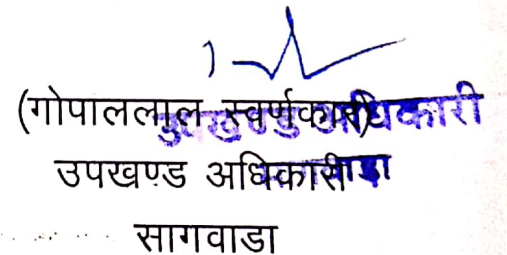 (गोपाललाल स्वर्णकार)
उपखण्ड अधिकारी
सागवाडा
उपखण्ड अधिकारी